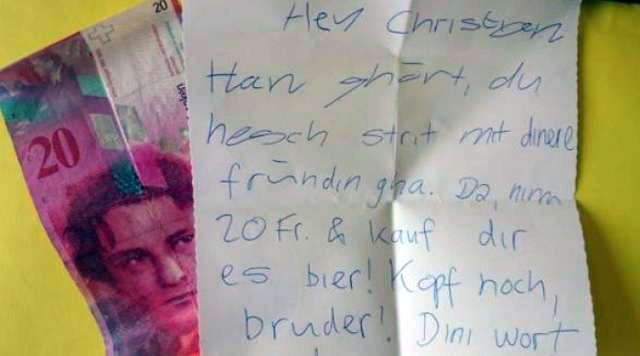 20
20
Hey Christben
Han ghört, du
heech strit mit dinere
fründin gha. Da, nimm
20 Fr. & kauf dir
es bier! Kopf hoch,
bruder! Dini wort